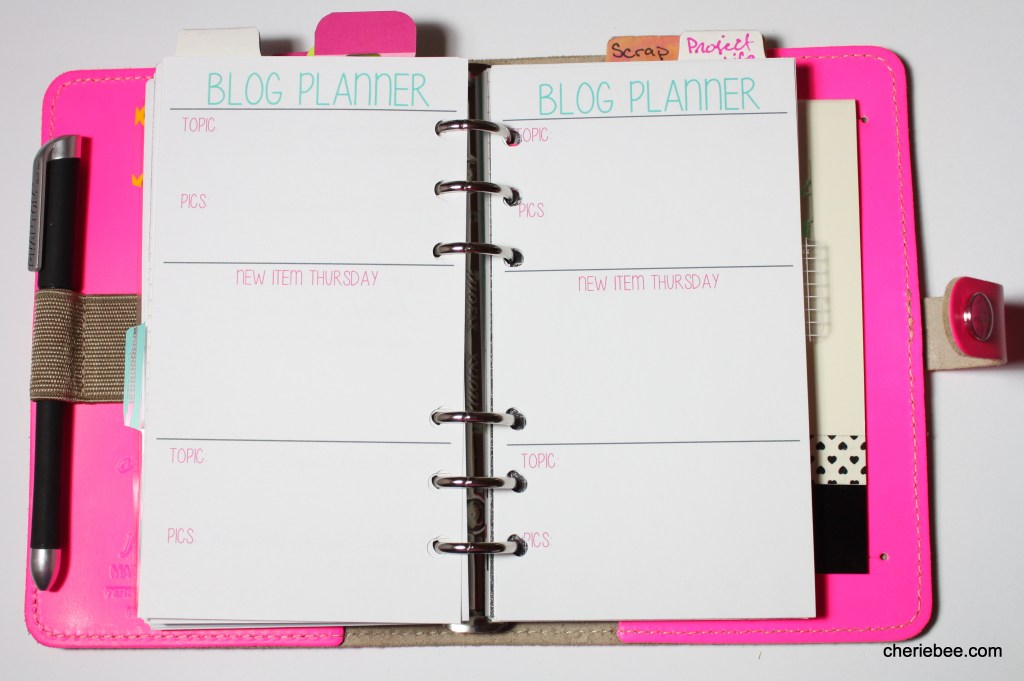 Scrap
Project
Life
BLOG PLANNER
TOPIC:
PICS
NEW ITEM THURSDAY
TOPIC:
PICS
BLOG PLANNER
TOPIC:
PICS
NEW ITEM THURSDAY
TOPIC:
PICS
cheriebee.com